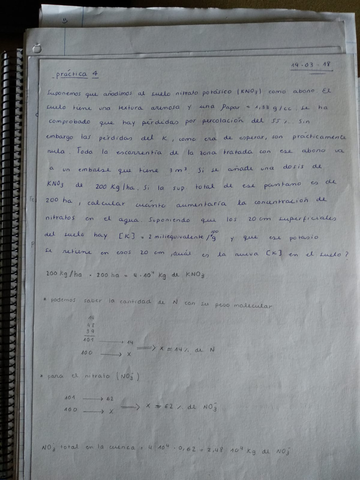 19-03-18
práctica 4
Suponemos que añadimos al suelo nitrato potásico (KNO3) como abono. El
suelo tiene una textura arenosa y una ρapar = g/cc. se ha
comprobado que hay pérdidas por percolación del 55%. Sin
embargo las pérdidas del K, como era de esperar, son prácticamente
nula. Toda la escorrentía de la zona tratada con ese abono va
a un embalse que tiene m3. Si se añade una dosis de
KNO3 de 200 Kg/ha. Si la sup. total de ese pantano es de
200 ha, calcular cuánto aumentaría la concentración de
nitratos en el agua. Suponiendo que los 20 cm superficiales
del suelo hay [K] = 2 miliequivalente/ g y que ese potasio
se retiene en esos 20 cm ¿cuál es la nueva [K] en el suelo?
200 Kg/ha · 200 ha = 4·10⁴ Kg de KNO3
* podemos saber la cantidad de N con su peso molecular
101 → 14
100 → X ⟹ X = 14 % de N
* para el nitrato [NO3-]
101 → 62
100 → X ⟹ X = 62 % de NO3-
NO3 total en la cuenca = 4·10⁴ · 0,62 = 2,48·10⁴ Kg de NO3-